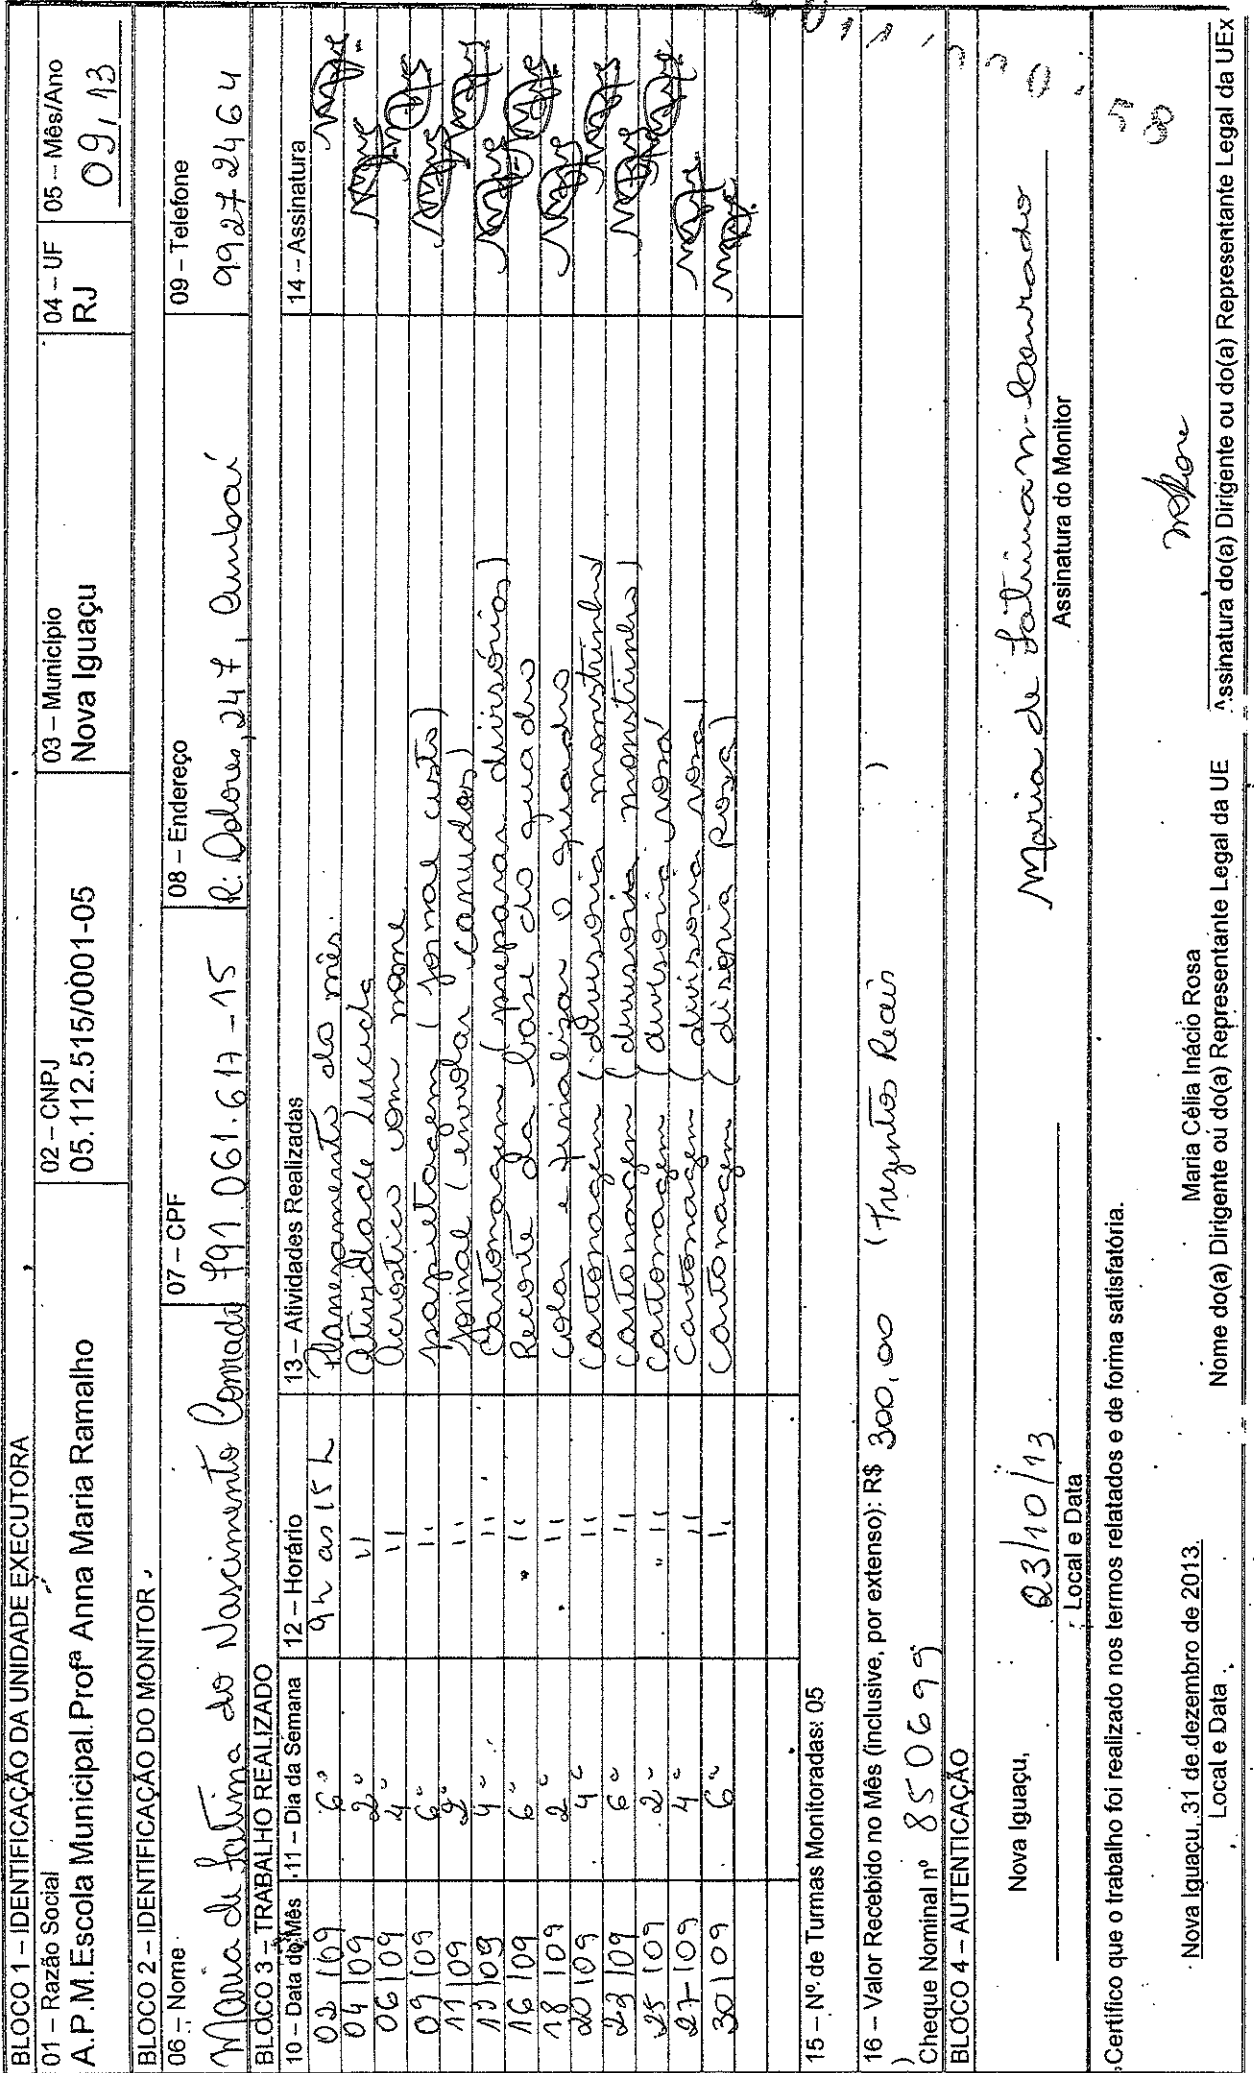 BLOCO 1 – IDENTIFICAÇÃO DA UNIDADE EXECUTORA
01 – Razão Social
A.P.M.Escola Municipal Profª Anna Maria Ramalho
02 – CNPJ
05.112.515/0001-05
03 – Município
Nova Iguaçu
04 – UF
RJ
05 – Mês/Ano
09, 13
BLOCO 2 – IDENTIFICAÇÃO DO MONITOR
06 – Nome
Maria de Fatima do Nascimento Conrado
07 – CPF
791.061.617-15
08 – Endereço
R: Dolores, 247, Ambaí
09 – Telefone
99272464
BLOCO 3 – TRABALHO REALIZADO
10 – Data do Mês 11 – Dia da Semana 12 – Horário 13 – Atividades Realizadas 14 – Assinatura
02/09 6ª 9h as 15h Planejamento do mês.
04/09 2ª " Atividade Lucida
06/09 4ª " Acrostico com nome
09/09 6ª " papietagem (jornal custo)
11/09 2ª " jornal (enrolar canudos)
13/09 4ª " Cartonagem (preparar divisórias)
16/09 6ª " Recorte da base do quadro
18/09 2ª " Colar e finalizar o quadro
20/09 4ª " Cartonagem (divisoria monstrinho)
23/09 6ª " Cartonagem (divisoria monstrinho)
25/09 2ª " Cartonagem (divisoria rosa
27/09 4ª " Cartonagem (divisoria rosa)
30/09 6ª " Cartonagem (disoria Rosa)
15 – Nº de Turmas Monitoradas: 05
16 – Valor Recebido no Mês (inclusive, por extenso): R$ 300,00 (Trezentos Reais )
)
Cheque Nominal nº 850699
BLOCO 4 – AUTENTICAÇÃO
Nova Iguaçu, 23/10/13
Local e Data
Maria de Fatima n. Conrado
Assinatura do Monitor
Certifico que o trabalho foi realizado nos termos relatados e de forma satisfatória.
Nova Iguaçu, 31 de dezembro de 2013.
Local e Data
Maria Célia Inácio Rosa
Nome do(a) Dirigente ou do(a) Representante Legal da UE
Assinatura do(a) Dirigente ou do(a) Representante Legal da UEx